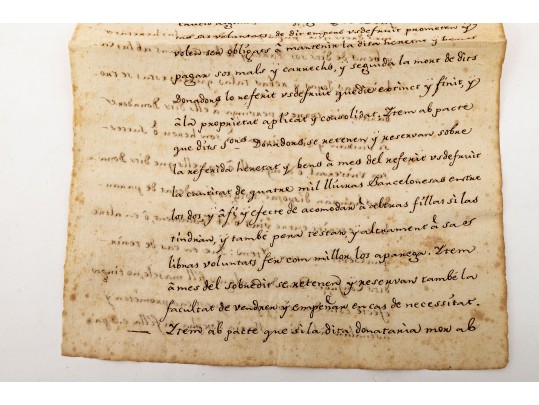 mas sas voluntats de dit empero vsdefruit prometen y
volen ser obligats â mantenir la dita heretat y bens
pagar sos mals y carrechs, y seguida la mort de dits
Donadors lo referit vsdefruit quedie extinct y finit, y
â la proprietat aplicat y consolidat. Ytem ab pacte
que dits Sors. Donadors, se retenen y reservan, sobre
la referida heretat y bens â mes del referit vsdefruit
la cantitat de quatre mil lliuras Barcelonesas entre
los dos, y â fi y efecte de acomodar â altras fillas si las
tindran, y tambe pera testar y altrament â sa es
libras voluntats fer com millor los aparega. Ytem
â mes del sobredit se retenen y reservan també la
facultat de vendrer y empeñar en cas de necessitat.
Ytem ab pacte que si la dita donataria mor ab